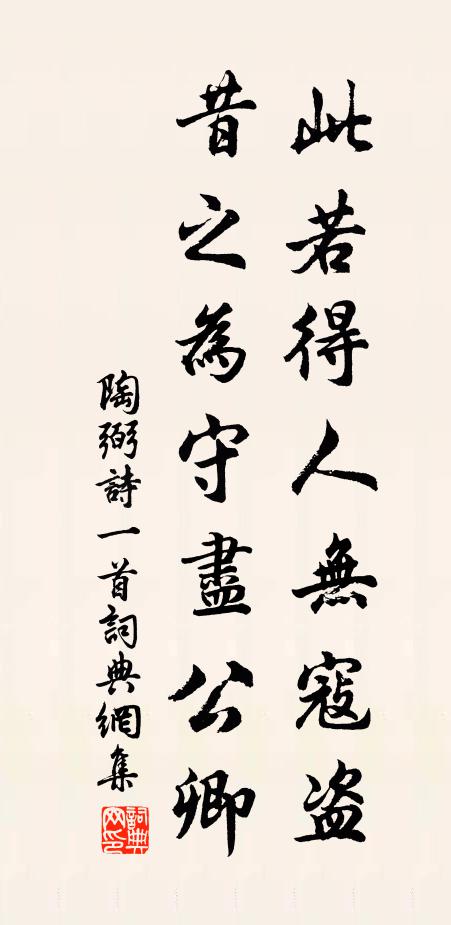 此若得人無寇盜
昔之為守盡公卿
陶弼詩一首詞典網集
詞典網印